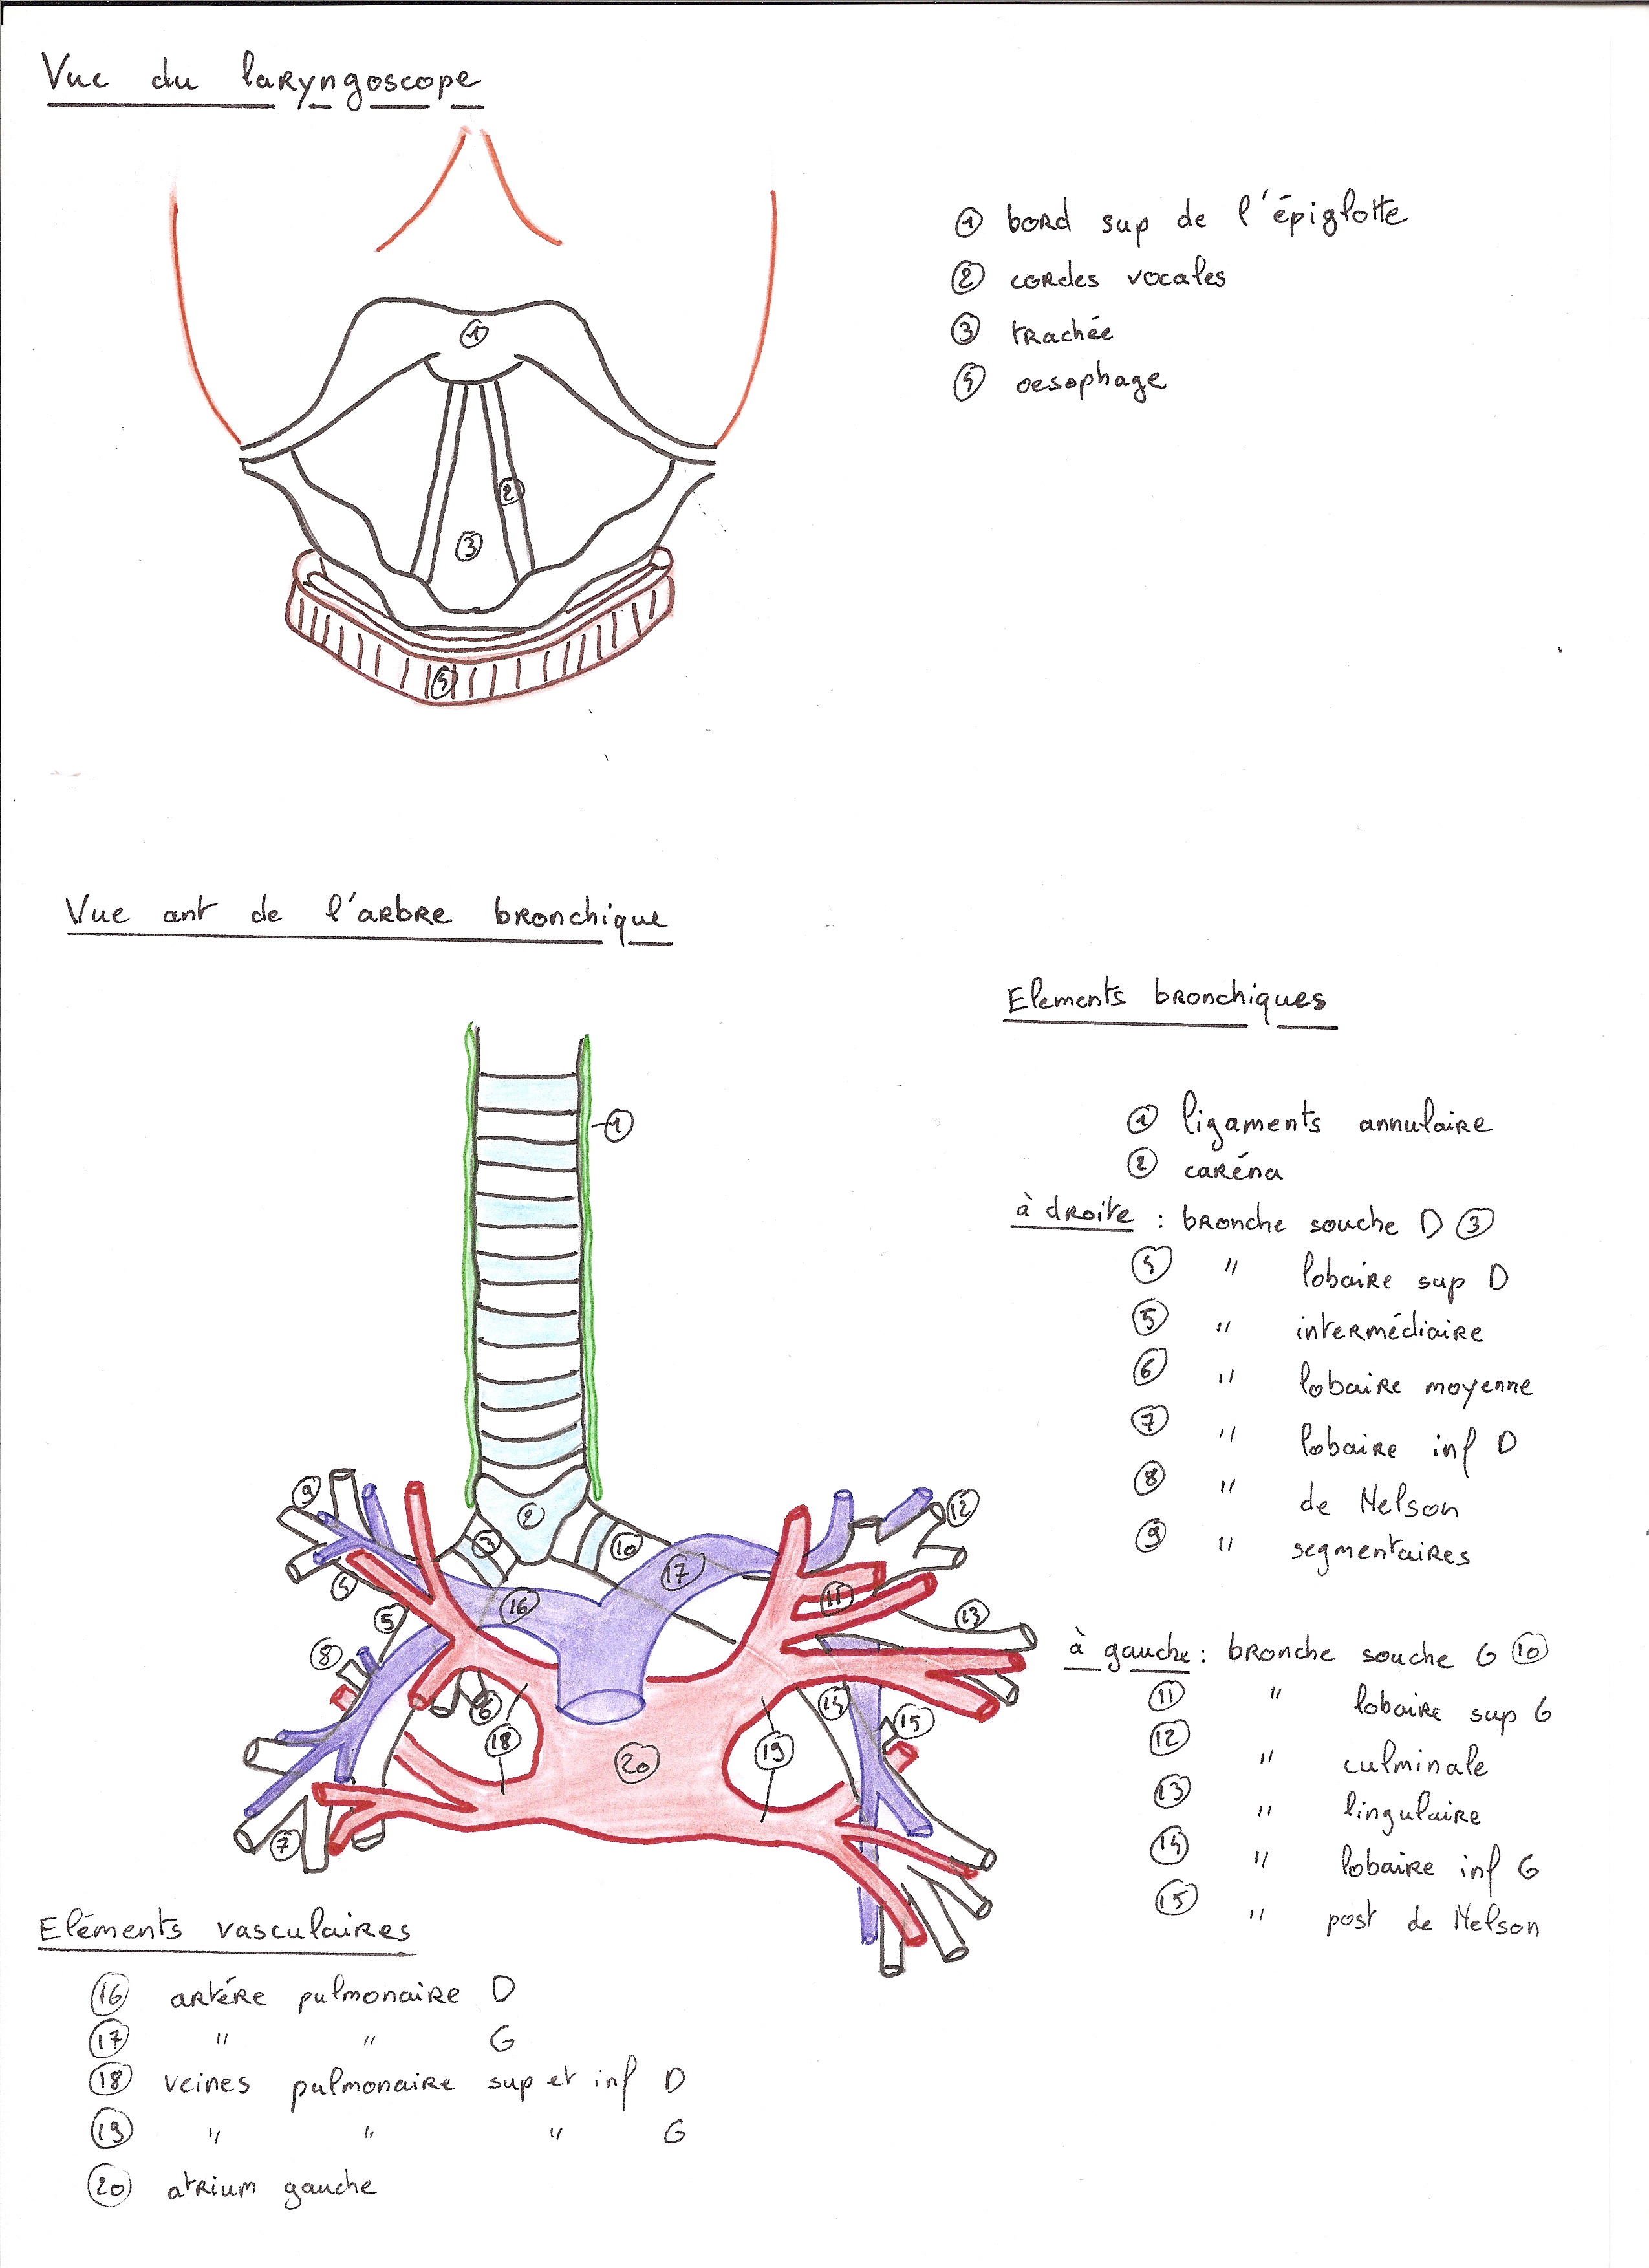 Vue du laryngoscope
① bord sup de l'épiglotte
② cordes vocales
③ trachée
④ oesophage
1
2
3
4
Vue ant de l'arbre bronchique
Elements bronchiques
① ligaments annulaire
② caréna
à droite : bronche souche D ③
④ " lobaire sup D
⑤ " intermédiaire
⑥ " lobaire moyenne
⑦ " lobaire inf D
⑧ " de Nelson
⑨ " segmentaires
à gauche : bronche souche G ⑩
⑪ " lobaire sup G
⑫ " culminale
⑬ " lingulaire
⑭ " lobaire inf G
⑮ " post de Nelson
1
9
2
12
3
10
4
17
11
16
5
13
8
6
14
15
18
19
20
7
Eléments vasculaires
⑯ artére pulmonaire D
⑰ " " G
⑱ veines pulmonaire sup et inf D
⑲ " " " G
⑳ atrium gauche